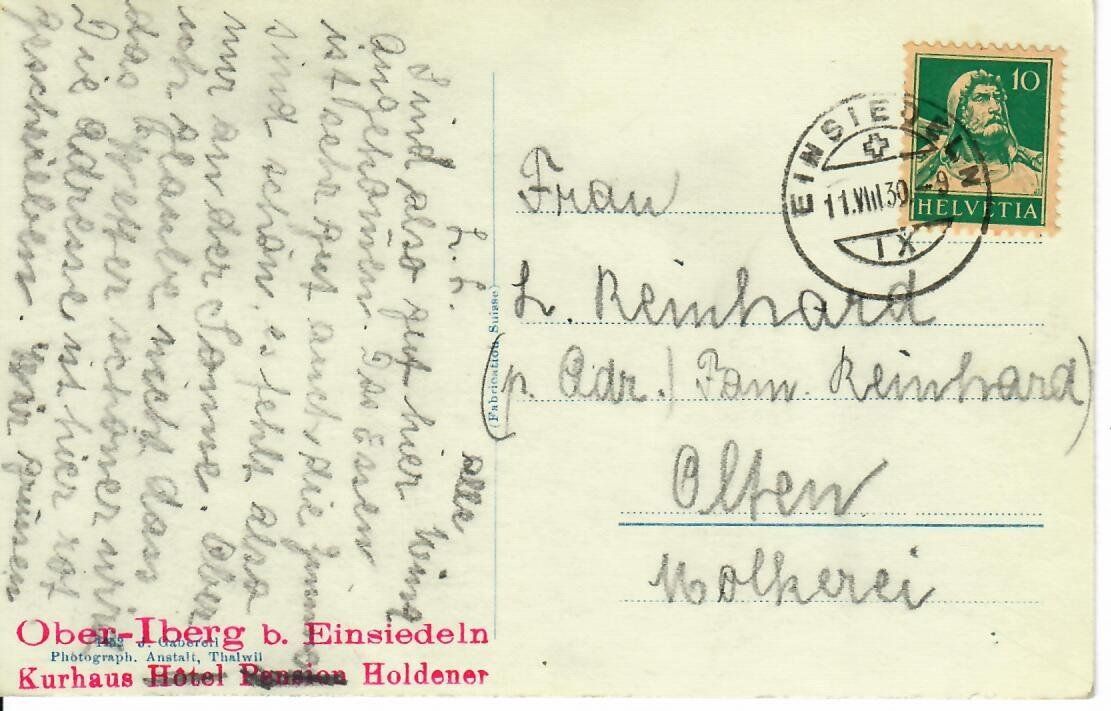 L. L.
Sind also gut hier
angekom̅en. Das Essen
ist sehr gut auch, die Zimmer
sind schön, es fehlt also
nur an der Sonne. Aber
ich glaube nicht dass
das Wetter schöner wird
Die Adresse ist hier rot
geschrieben. Wir grüssen
alle
Frau
L. Reinhard
(p. Adr. / Fam. Reinhard)
Olten
Molkerei
10
HELVETIA
EINSIEDELN
11.VIII.30.-9
IX
(Fabrication Suisse)
Ober-Iberg b. Einsiedeln
J. Gaberell
Photograph. Anstalt, Thalwil
Kurhaus Hôtel Pension Holdener